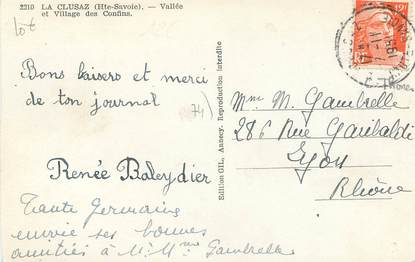 2210 LA CLUSAZ (Hte-Savoie). — Vallée
et Village des Confins.
Bons baisers et merci
de ton journal
Renée Baleydier
Tante Germaine
envoie ses bonnes
amitiés à M. Mme Gambrelle
74)
Edition GIL, Annecy. Reproduction interdite
12F
RF
Rhône
Mme M. Gambrelle
286 Rue Garibaldi
Lyon
Rhône